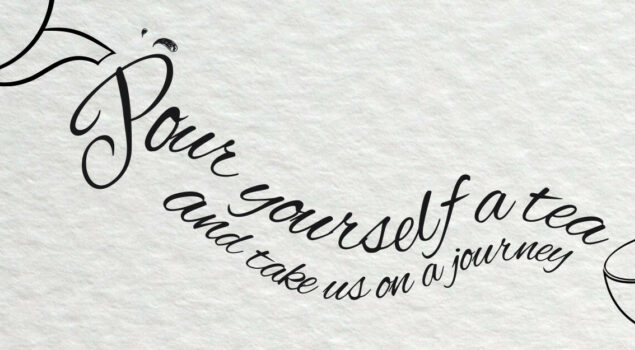 Pour yourself a tea
and take us on a journey